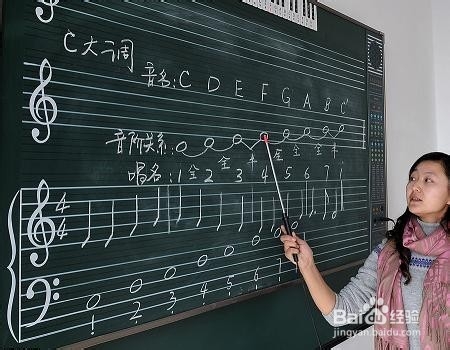 C大调
音名: C D E F G A B C¹
音阶关系:
全 全 半 全 全 全 半
唱名: 1 2 3 4 5 6 7 i
4
4
1 2 3 4 5 6 7
Baidu 经验
jingyan.baidu.com